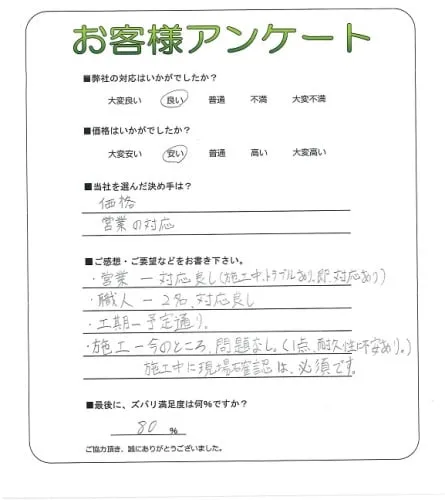 お客様アンケート
■弊社の対応はいかがでしたか?
大変良い 良い 普通 不満 大変不満
■価格はいかがでしたか?
大変安い 安い 普通 高い 大変高い
■当社を選んだ決め手は?
価格
営業の対応
■ご感想・ご要望などをお書き下さい。
・営業 ー 対応良し(施工中、トラブルあり、即、対応あり)
・職人 ー 2名、対応良し
・工期 ー 予定通り。
・施工 ー 今のところ、問題なし。(1点、耐久性に不安あり。)
施工中に現場確認は、必須です。
■最後に、ズバリ満足度は何%ですか?
80 %
ご協力頂き、誠にありがとうございました。